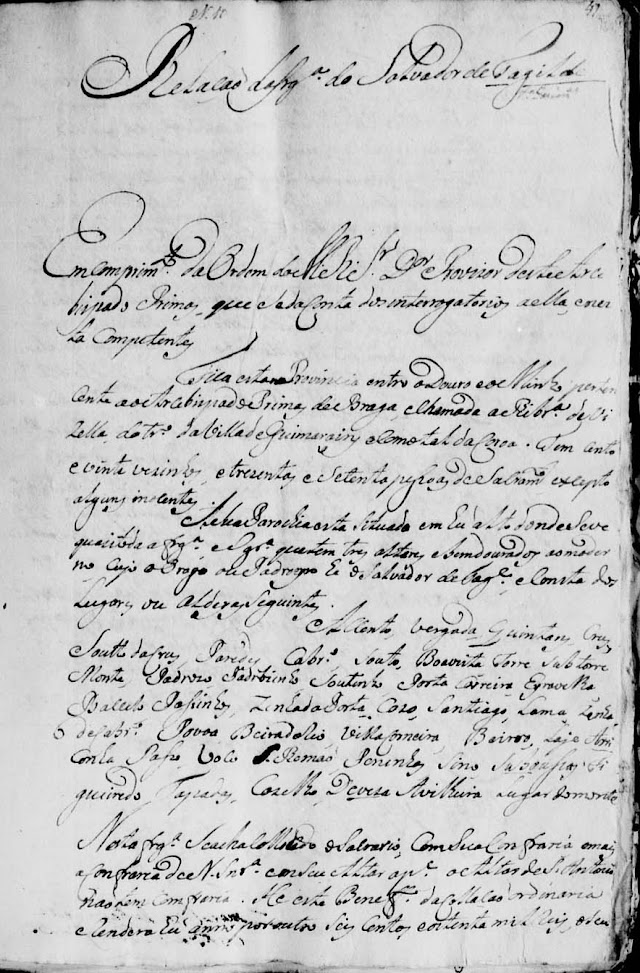 47
Relacaõ da frg.ª do Salvador de Tagilde
Em comprim.to da Ordem do M. R. Sr. D.or Provizor deste Arce
bispado Primas, que se da Conta dos interrogatorios a ella, e nel
la Competentes
Fica esta na Provincia entre o Douro e o Minho, perten
cente ao Arcebispado Primas de Braga e chamada a Ribr.ª de Vi
zella, do tr.º da Villa de Guimarains e Comca tal da Coroa. Tem cento
e vinte vezinhos, e trezentas e setenta pessoas de Sacram.to excepto
alguns inocentes
A sua Parochia esta situada em hu alto donde se ve
quazi toda a frg.ª, e Igr.ª que tem tres altares, e bem dourados ao moder
no cujo o Orago ou Padroeyro he o Salvador de Tag.e, e Consta dos
Lugares ou Aldeyas Seguintes
Assento, Vergada, Quintans, Cruz
Souto da Cruz, Paredes, Cabr.ª, Souto, Boavista Torre Subtorre
Monte Padrozo Padrozinho Soutinho Porta Carreira Egrovelha
Bacelo Passinhos, Zenha da Porta, Cazo, Santiago, Lama, Zenha
de Cabr.ª Povoa Beira do Rio Villa Moreira, Bairro, Laje Arri
conha Passo Volo S. Romaõ Peninhas Sino Fi
gueiredo Tapadas, Cozelho, Deveza Avilheira Lugar do monte
Nesta frg.ª Se acha Collocado o Sacrario, Com Sua Confraria e mais
a Confraria de N. Snr.ª em seu Altar e o Altar de S. Antonio
naõ tem Confraria. He este Benef.º da Collacaõ ordinaria
e rendera hu anno por outro Seis Centos e outenta mil reis, e seu